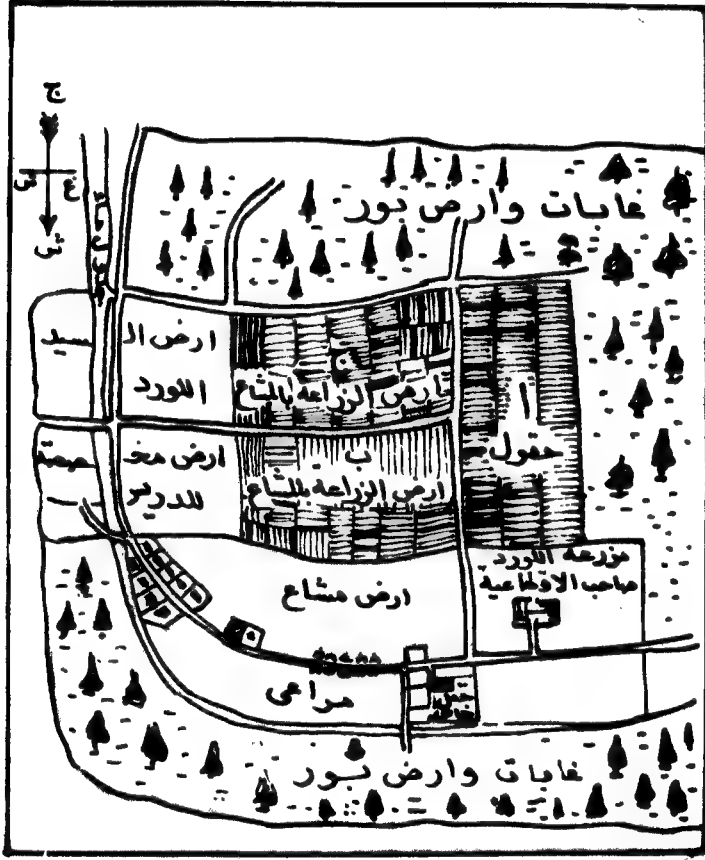 ج
غ
ش
غابات وارض بور
ارض السيد
اللورد
ارض الزراعة بالمشاع
ا
حقول
ارض مخصصة
للدريس
ب
ارض الزراعة بالمشاع
مزرعة اللورد
صاحب الاقطاعية
ارض مشاع
مراعى
غابات وارض بور